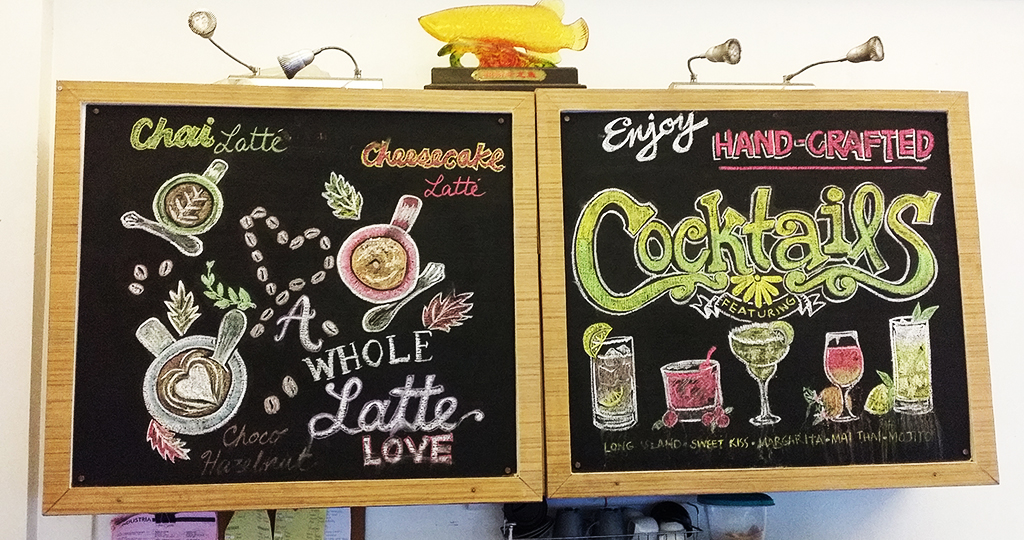 Chai Latté
Cheesecake
Latté
A
WHOLE
Latte
LOVE
Choco
Hazelnut
Enjoy
HAND-CRAFTED
Cocktails
FEATURING
LONG ISLAND • SWEET KISS • MARGARITA • MAI THAI • MOJITO
INDUSTRIA